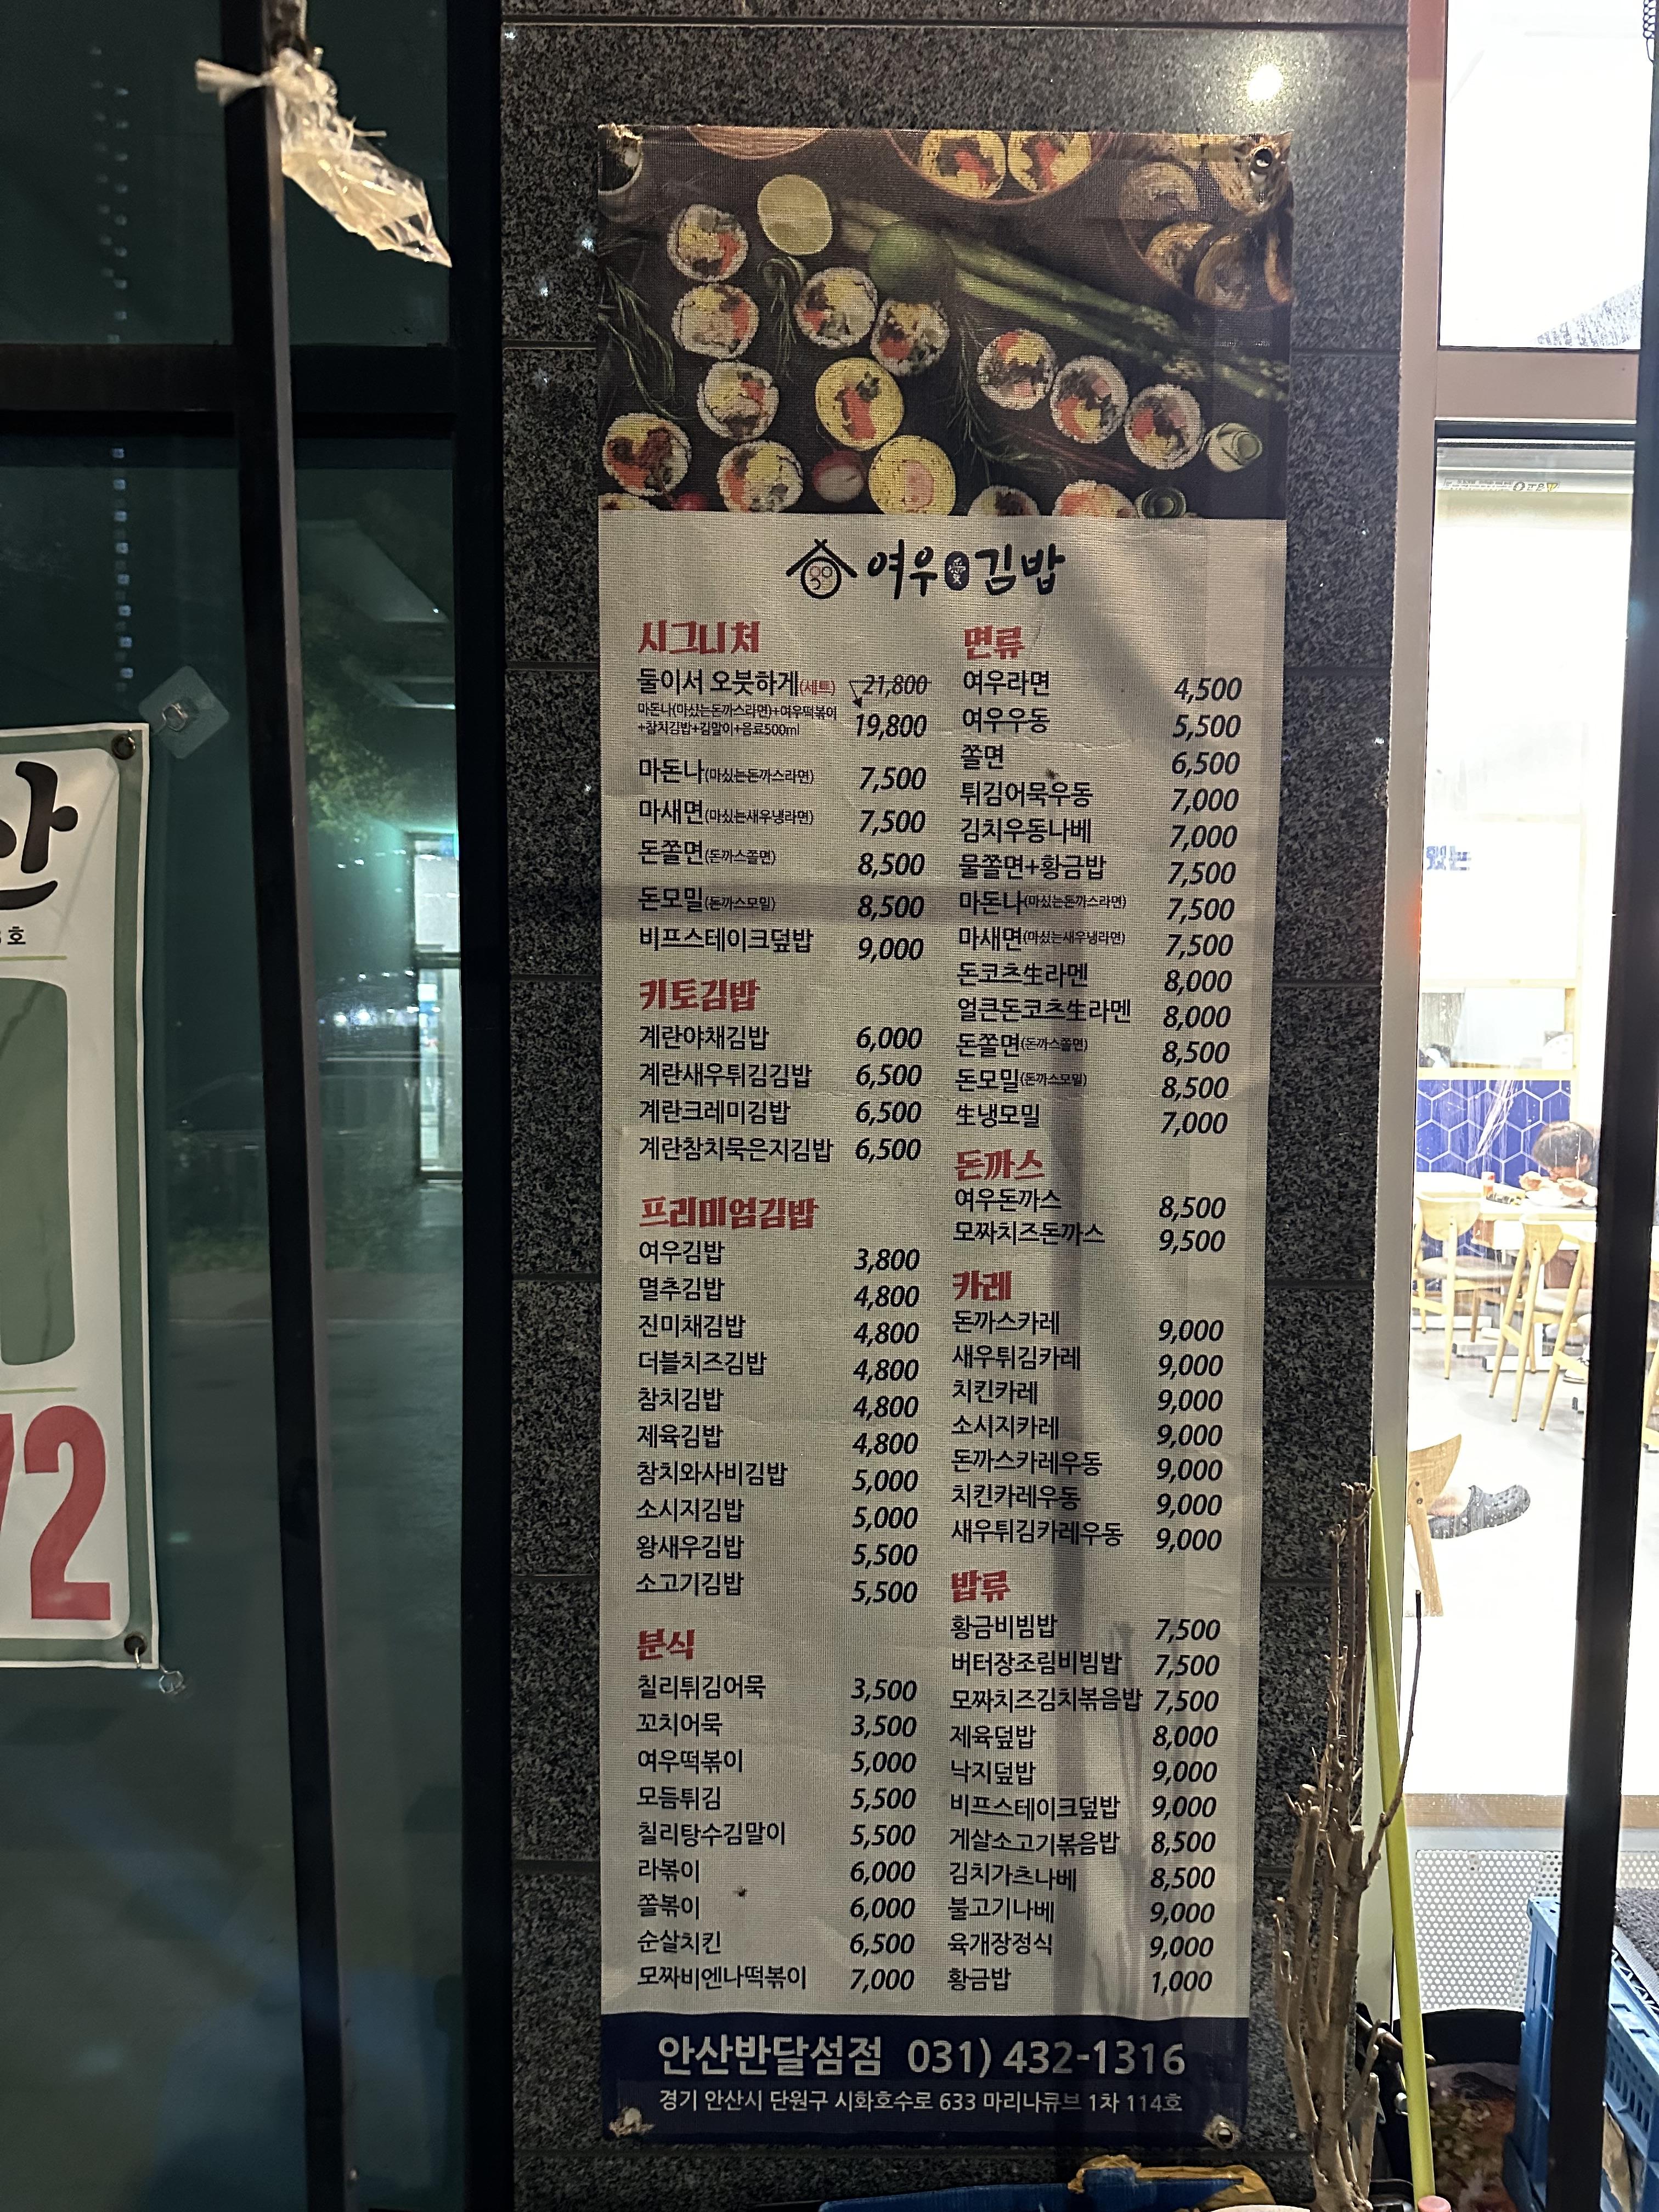 산
호
72
여우愛김밥
시그니처
둘이서 오붓하게(세트) 21,800
마돈나(마싰는돈까스라면)+여우떡볶이
+참치김밥+김말이+음료500ml 19,800
마돈나(마싰는돈까스라면) 7,500
마새면(마싰는새우냉라면) 7,500
돈쫄면(돈까스쫄면) 8,500
돈모밀(돈까스모밀) 8,500
비프스테이크덮밥 9,000
키토김밥
계란야채김밥 6,000
계란새우튀김김밥 6,500
계란크레미김밥 6,500
계란참치묵은지김밥 6,500
프리미엄김밥
여우김밥 3,800
멸추김밥 4,800
진미채김밥 4,800
더블치즈김밥 4,800
참치김밥 4,800
제육김밥 4,800
참치와사비김밥 5,000
소시지김밥 5,000
왕새우김밥 5,500
소고기김밥 5,500
분식
칠리튀김어묵 3,500
꼬치어묵 3,500
여우떡볶이 5,000
모듬튀김 5,500
칠리탕수김말이 5,500
라볶이 6,000
쫄볶이 6,000
순살치킨 6,500
모짜비엔나떡볶이 7,000
면류
여우라면 4,500
여우우동 5,500
쫄면 6,500
튀김어묵우동 7,000
김치우동나베 7,000
물쫄면+황금밥 7,500
마돈나(마싰는돈까스라면) 7,500
마새면(마싰는새우냉라면) 7,500
돈코츠生라멘 8,000
얼큰돈코츠生라멘 8,000
돈쫄면(돈까스쫄면) 8,500
돈모밀(돈까스모밀) 8,500
生냉모밀 7,000
돈까스
여우돈까스 8,500
모짜치즈돈까스 9,500
카레
돈까스카레 9,000
새우튀김카레 9,000
치킨카레 9,000
소시지카레 9,000
돈까스카레우동 9,000
치킨카레우동 9,000
새우튀김카레우동 9,000
밥류
황금비빔밥 7,500
버터장조림비빔밥 7,500
모짜치즈김치볶음밥 7,500
제육덮밥 8,000
낙지덮밥 9,000
비프스테이크덮밥 9,000
게살소고기볶음밥 8,500
김치가츠나베 8,500
불고기나베 9,000
육개장정식 9,000
황금밥 1,000
안산반달섬점 031) 432-1316
경기 안산시 단원구 시화호수로 633 마리나큐브 1차 114호